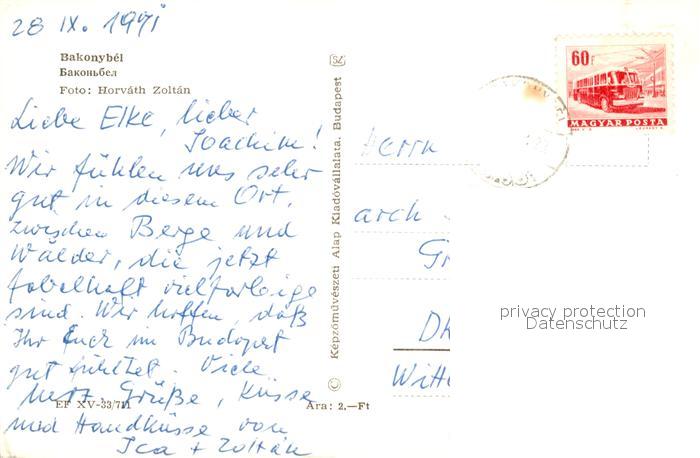 28 IX. 1971
Bakonybél
Баконьбел
Foto: Horváth Zoltán
Liebe Elke, lieber
Joachim!
Wir fühlen uns sehr
gut in diesem Ort,
zwischen Berge und
Wälder, die jetzt
fabelhaft vielfarbige
sind. Wir hoffen, daß
Ihr Euch in Budapest
gut fühltet. Viele
herz. Grüße, Küsse
und Handküsse von
Ica + Zoltán
EF XV-33/711
Ára: 2,—Ft
© Képzőművészeti Alap Kiadóvállalata, Budapest
60f
MAGYAR POSTA
Herrn
arch
privacy protection
Datenschutz
Witt